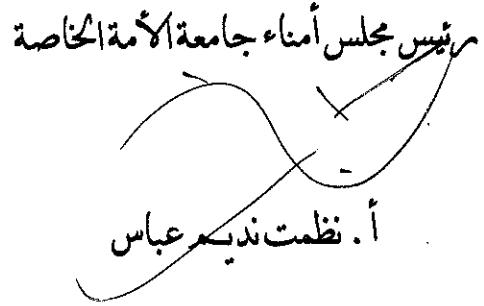 رئيس مجلس أمناء جامعة الأمة الخاصة
أ. نظمت نديم عباس